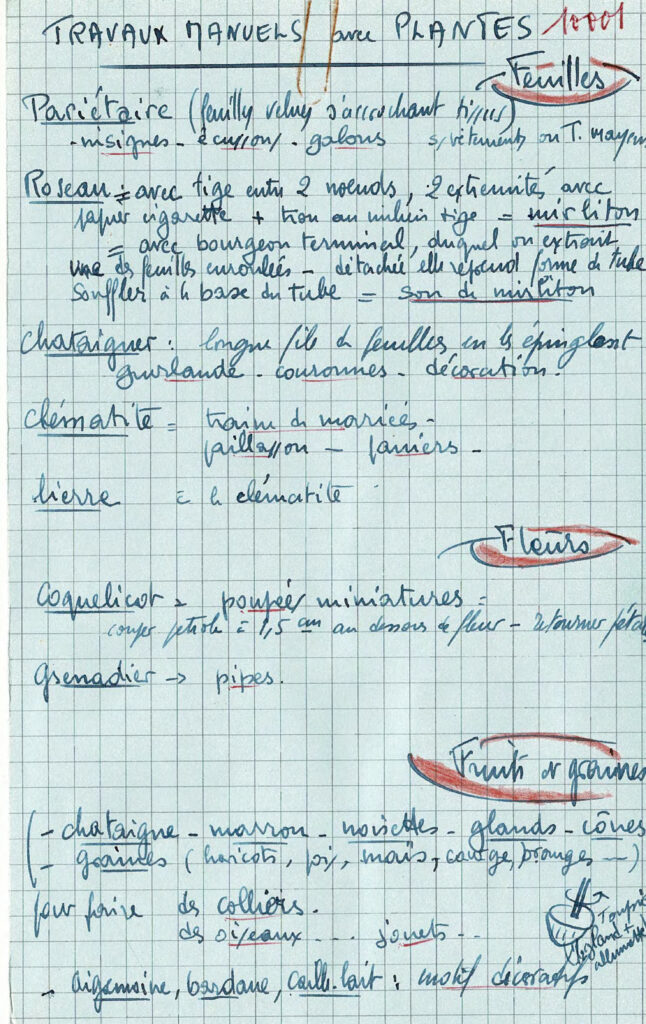 TRAVAUX MANUELS avec PLANTES
Feuilles
Pariétaire (feuilles velues s'accrochant tissus)
- insignes - écussons - galons s/vêtements ou T.
Roseau = avec tige entre 2 noeuds, 2 extremités avec
papier cigarette + trou au milieu tige = mirliton
= avec bourgeon terminal, duquel on extrait
une des feuilles enroulées - détachée elle reprend forme de tube
Souffler à la base du tube = son de mirliton
Chataigner : longue file de feuilles en les épinglant
guirlande - couronnes - décoration.
Clématite = traine de mariées -
paillasson - paniers -
lierre = la clématite
Fleurs
Coquelicot = poupées miniatures =
couper à 1,5 cm au dessous de fleur - retourner
grenadier → pipes.
Fruits et graines
(- chataigne - marron - noisettes - glands - cônes
- graines (haricots, pois, maïs, courge, oranges ---)
pour faire des colliers.
des oiseaux --- jouets --
Toupie
gland +
allumette
- aigremoine, bardane, caille-lait : motif décoratifs